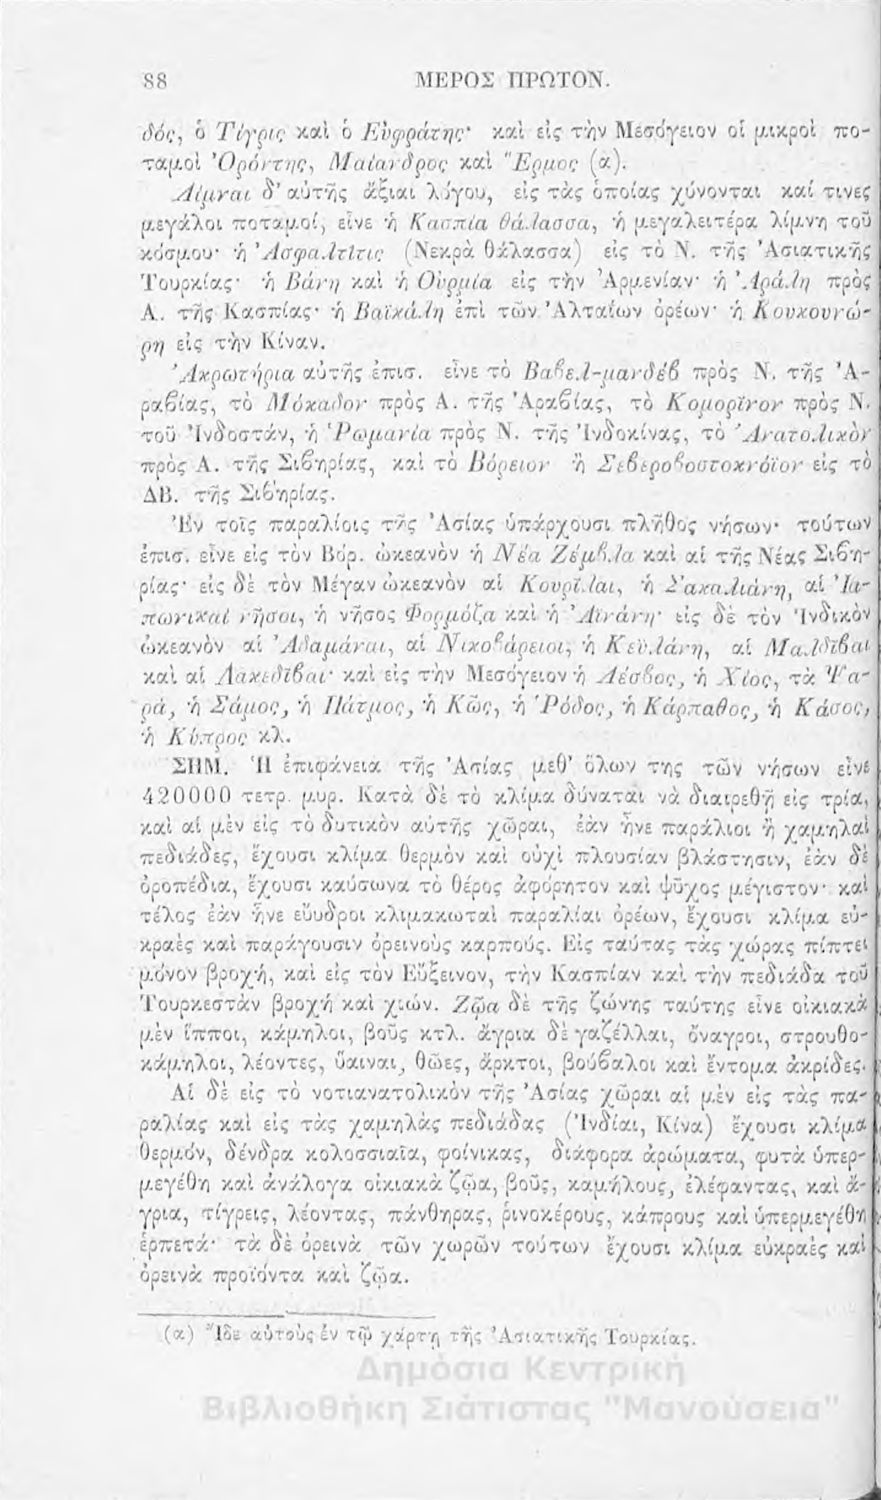 88 ΜΕΡΟΣ ΠΡΩΤΟΝ.
δός, ὁ Τίγρις καὶ ὁ Εὐφράτης· καὶ εἰς τὴν Μεσόγειον οἱ μικροὶ πο-
ταμοὶ Ὀρόντης, Μαίανδρος καὶ Ἕρμος (α).
Λίμναι δ' αὐτῆς ἄξιαι λόγου, εἰς τὰς ὁποίας χύνονται καί τινες
μεγάλοι ποταμοί, εἶνε ἡ Κασπία θάλασσα, ἡ μεγαλειτέρα λίμνη τοῦ
κόσμου· ἡ Ἀσφαλτῖτις (Νεκρὰ θάλασσα) εἰς τὸ Ν. τῆς Ἀσιατικῆς
Τουρκίας· ἡ Βάνη καὶ ἡ Οὐρμία εἰς τὴν Ἀρμενίαν· ἡ Ἀράλη πρὸς
Α. τῆς Κασπίας· ἡ Βαϊκάλη ἐπὶ τῶν Ἀλταΐων ὀρέων· ἡ Κουκουνώ-
ρη εἰς τὴν Κίναν.
Ἀκρωτήρια αὐτῆς ἐπισ. εἶνε τὸ Βαβελ-μανδέβ πρὸς Ν. τῆς Ἀ-
ραβίας, τὸ Μόκαδον πρὸς Α. τῆς Ἀραβίας, τὸ Κομορῖνον πρὸς Ν.
τοῦ Ἰνδοστάν, ἡ Ῥωμανία πρὸς Ν. τῆς Ἰνδοκίνας, τὸ Ἀνατολικὸν
πρὸς Α. τῆς Σιβηρίας, καὶ τὸ Βόρειον ἢ Σεβεροβοστοκνόϊον εἰς τὸ
ΔΒ. τῆς Σιβηρίας.
Ἐν τοῖς παραλίοις τῆς Ἀσίας ὑπάρχουσι πλῆθος νήσων· τούτων
ἐπισ. εἶνε εἰς τὸν Βόρ. ὠκεανὸν ἡ Νέα Ζέμβλα καὶ αἱ τῆς Νέας Σιβη-
ρίας· εἰς δὲ τὸν Μέγαν ὠκεανὸν αἱ Κουρίλαι, ἡ Σακαλιάνη, αἱ Ἰα-
πωνικαὶ νῆσοι, ἡ νῆσος Φορμόζα καὶ ἡ Ἀϊνάνη· εἰς δὲ τὸν Ἰνδικὸν
ὠκεανὸν αἱ Ἀδαμάναι, αἱ Νικοβάρειοι, ἡ Κεϋλάνη, αἱ Μαλδῖβαι
καὶ αἱ Λακεδῖβαι· καὶ εἰς τὴν Μεσόγειον ἡ Λέσβος, ἡ Χίος, τὰ Ψα-
ρά, ἡ Σάμος, ἡ Πάτμος, ἡ Κῶς, ἡ Ῥόδος, ἡ Κάρπαθος, ἡ Κάσος,
ἡ Κύπρος κλ.
ΣΗΜ. Ἡ ἐπιφάνεια τῆς Ἀσίας μεθ' ὅλων της τῶν νήσων εἶνε
420000 τετρ. μυρ. Κατὰ δὲ τὸ κλίμα δύναται νὰ διαιρεθῇ εἰς τρία,
καὶ αἱ μὲν εἰς τὸ δυτικὸν αὐτῆς χῶραι, ἐὰν ᾖνε παράλιοι ἢ χαμηλαὶ
πεδιάδες, ἔχουσι κλίμα θερμὸν καὶ οὐχὶ πλουσίαν βλάστησιν, ἐὰν δὲ
ὀροπέδια, ἔχουσι καύσωνα τὸ θέρος ἀφόρητον καὶ ψῦχος μέγιστον· καὶ
τέλος ἐὰν ᾖνε εὔυδροι κλιμακωταὶ παραλίαι ὀρέων, ἔχουσι κλίμα εὐ-
κραὲς καὶ παράγουσιν ὀρεινοὺς καρπούς. Εἰς ταύτας τὰς χώρας πίπτει
μόνον βροχή, καὶ εἰς τὸν Εὔξεινον, τὴν Κασπίαν καὶ τὴν πεδιάδα τοῦ
Τουρκεστὰν βροχὴ καὶ χιών. Ζῷα δὲ τῆς ζώνης ταύτης εἶνε οἰκιακὰ
μὲν ἵπποι, κάμηλοι, βοῦς κτλ. ἄγρια δὲ γαζέλλαι, ὄναγροι, στρουθο-
κάμηλοι, λέοντες, ὕαιναι, θῶες, ἄρκτοι, βούβαλοι καὶ ἔντομα ἀκρίδες.
Αἱ δὲ εἰς τὸ νοτιανατολικὸν τῆς Ἀσίας χῶραι αἱ μὲν εἰς τὰς πα-
ραλίας καὶ εἰς τὰς χαμηλὰς πεδιάδας (Ἰνδίαι, Κίνα) ἔχουσι κλίμα
θερμόν, δένδρα κολοσσιαῖα, φοίνικας, διάφορα ἀρώματα, φυτὰ ὑπερ-
μεγέθη καὶ ἀνάλογα οἰκιακὰ ζῷα, βοῦς, καμήλους, ἐλέφαντας, καὶ ἄ-
γρια, τίγρεις, λέοντας, πάνθηρας, ῥινοκέρους, κάπρους καὶ ὑπερμεγέθη
ἑρπετά· τὰ δὲ ὀρεινὰ τῶν χωρῶν τούτων ἔχουσι κλίμα εὐκραὲς καὶ
ὀρεινὰ προϊόντα καὶ ζῷα.
(α) Ἴδε αὐτοὺς ἐν τῷ χάρτῃ τῆς Ἀσιατικῆς Τουρκίας.
Δημόσια Κεντρική
Βιβλιοθήκη Σιάτιστας "Μανούσεια"